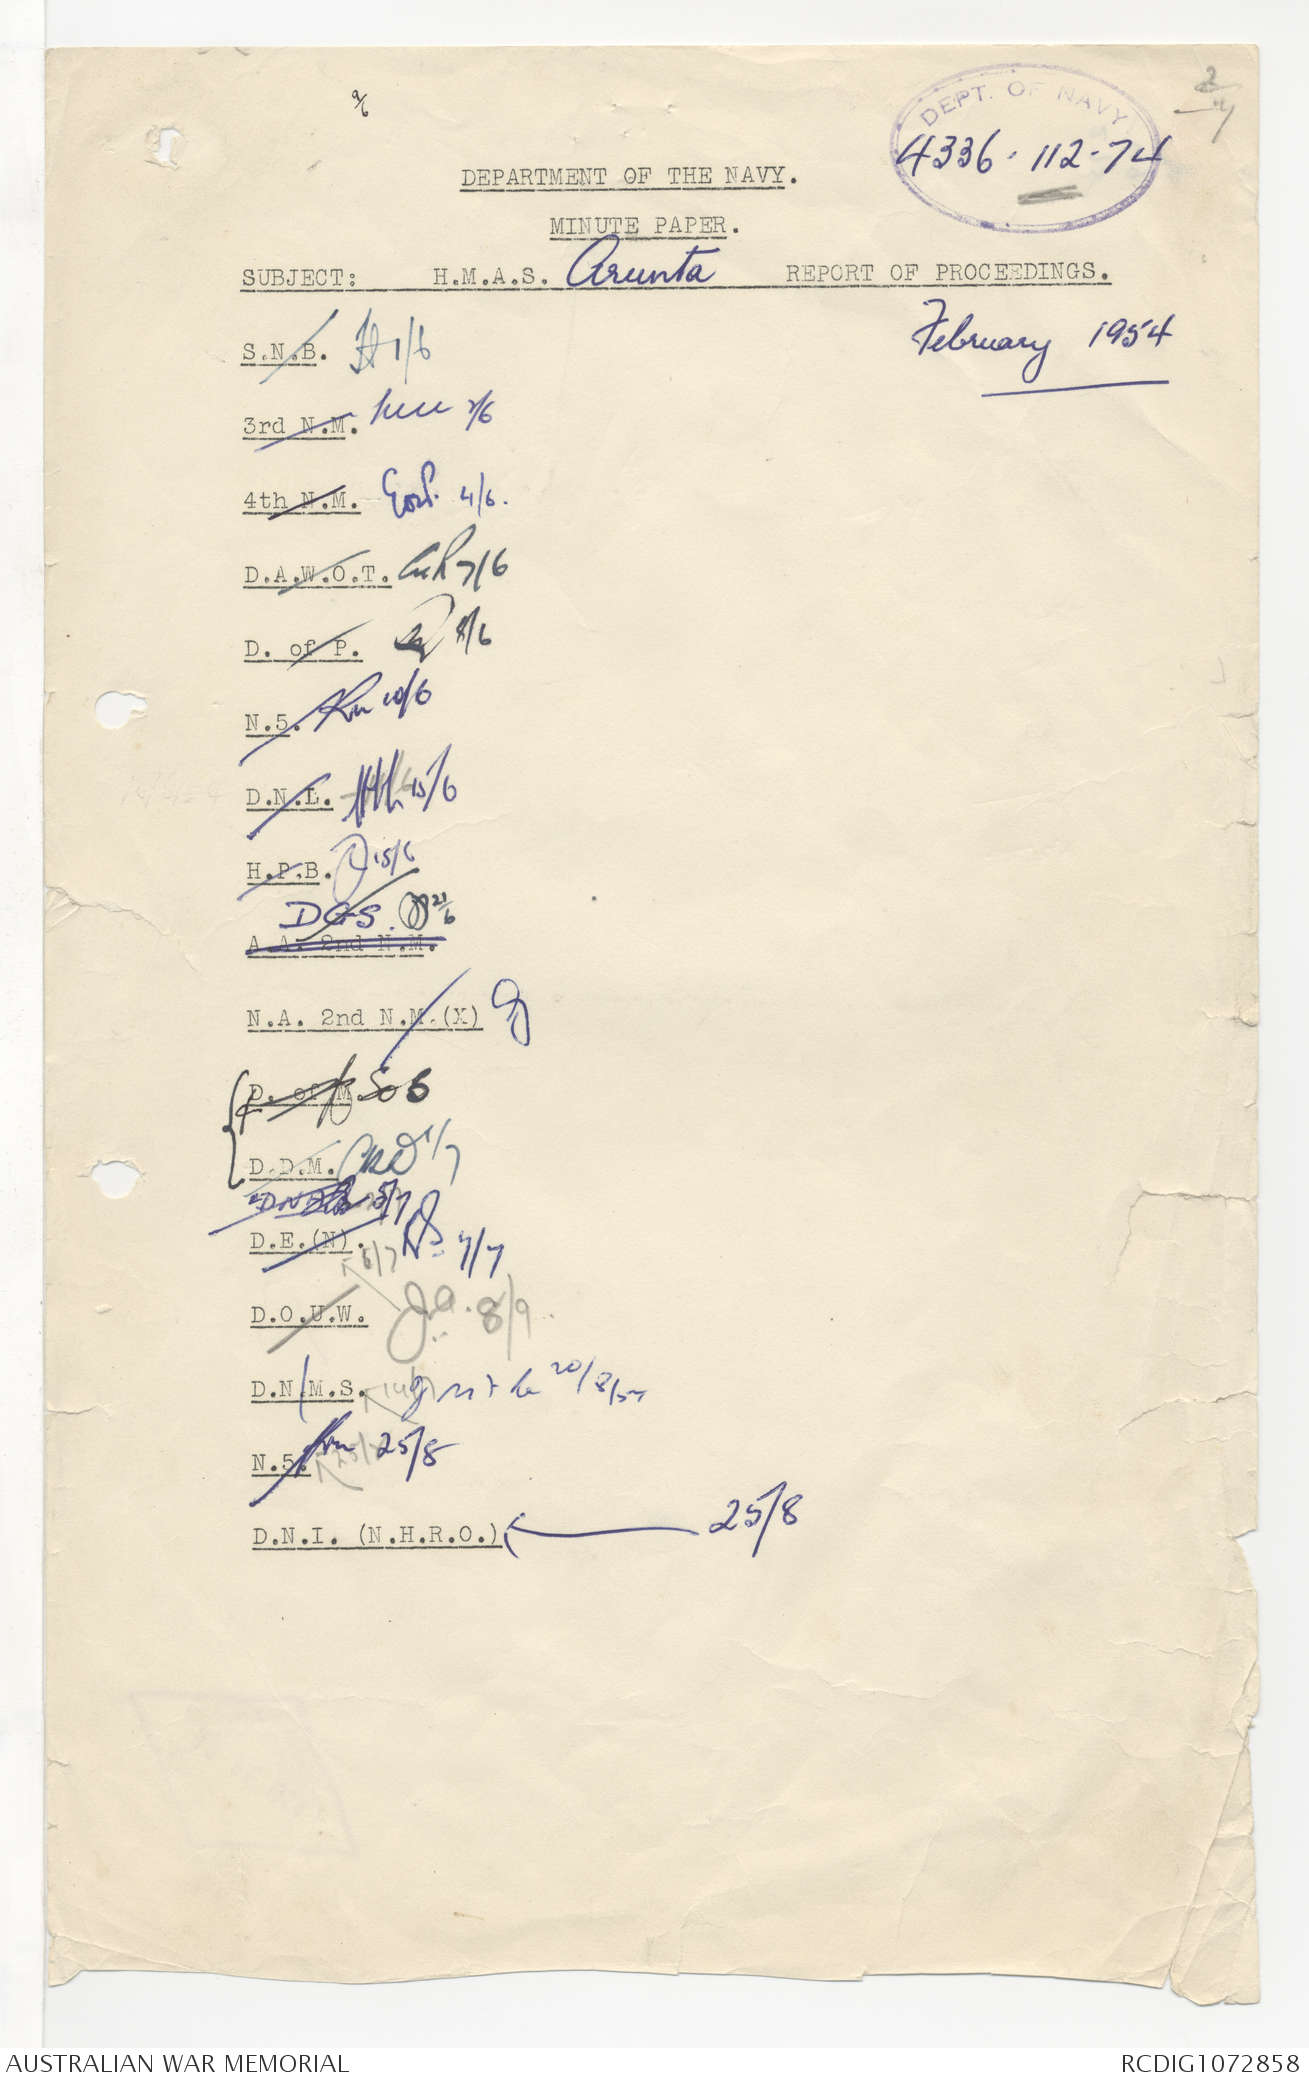 9/6
DEPT. OF NAVY
4336. 112-74
DEPARTMENT OF THE NAVY.
MINUTE PAPER.
SUBJECT: H.M.A.S. Arunta REPORT OF PROCEEDINGS.
February 1954
S.N.B. 1/6
3rd N.M. 2/6
4th N.M. 4/6.
D.A.W.O.T. 7/6
D. of P. 8/6
N.5. 10/6
D.N.L. 15/6
H.P.B. 15/6
DGS. 21/6
A.A. 2nd N.M.
N.A. 2nd N.M.(X)
D. of M
D.D.M. 1/7
5/7
D.E.(N). 7/7
6/7
D.O.U.W. 8/9
D.N.M.S. 20/8/54
N.5. 25/8
D.N.I. (N.H.R.O.) 25/8
AUSTRALIAN WAR MEMORIAL
RCDIG1072858